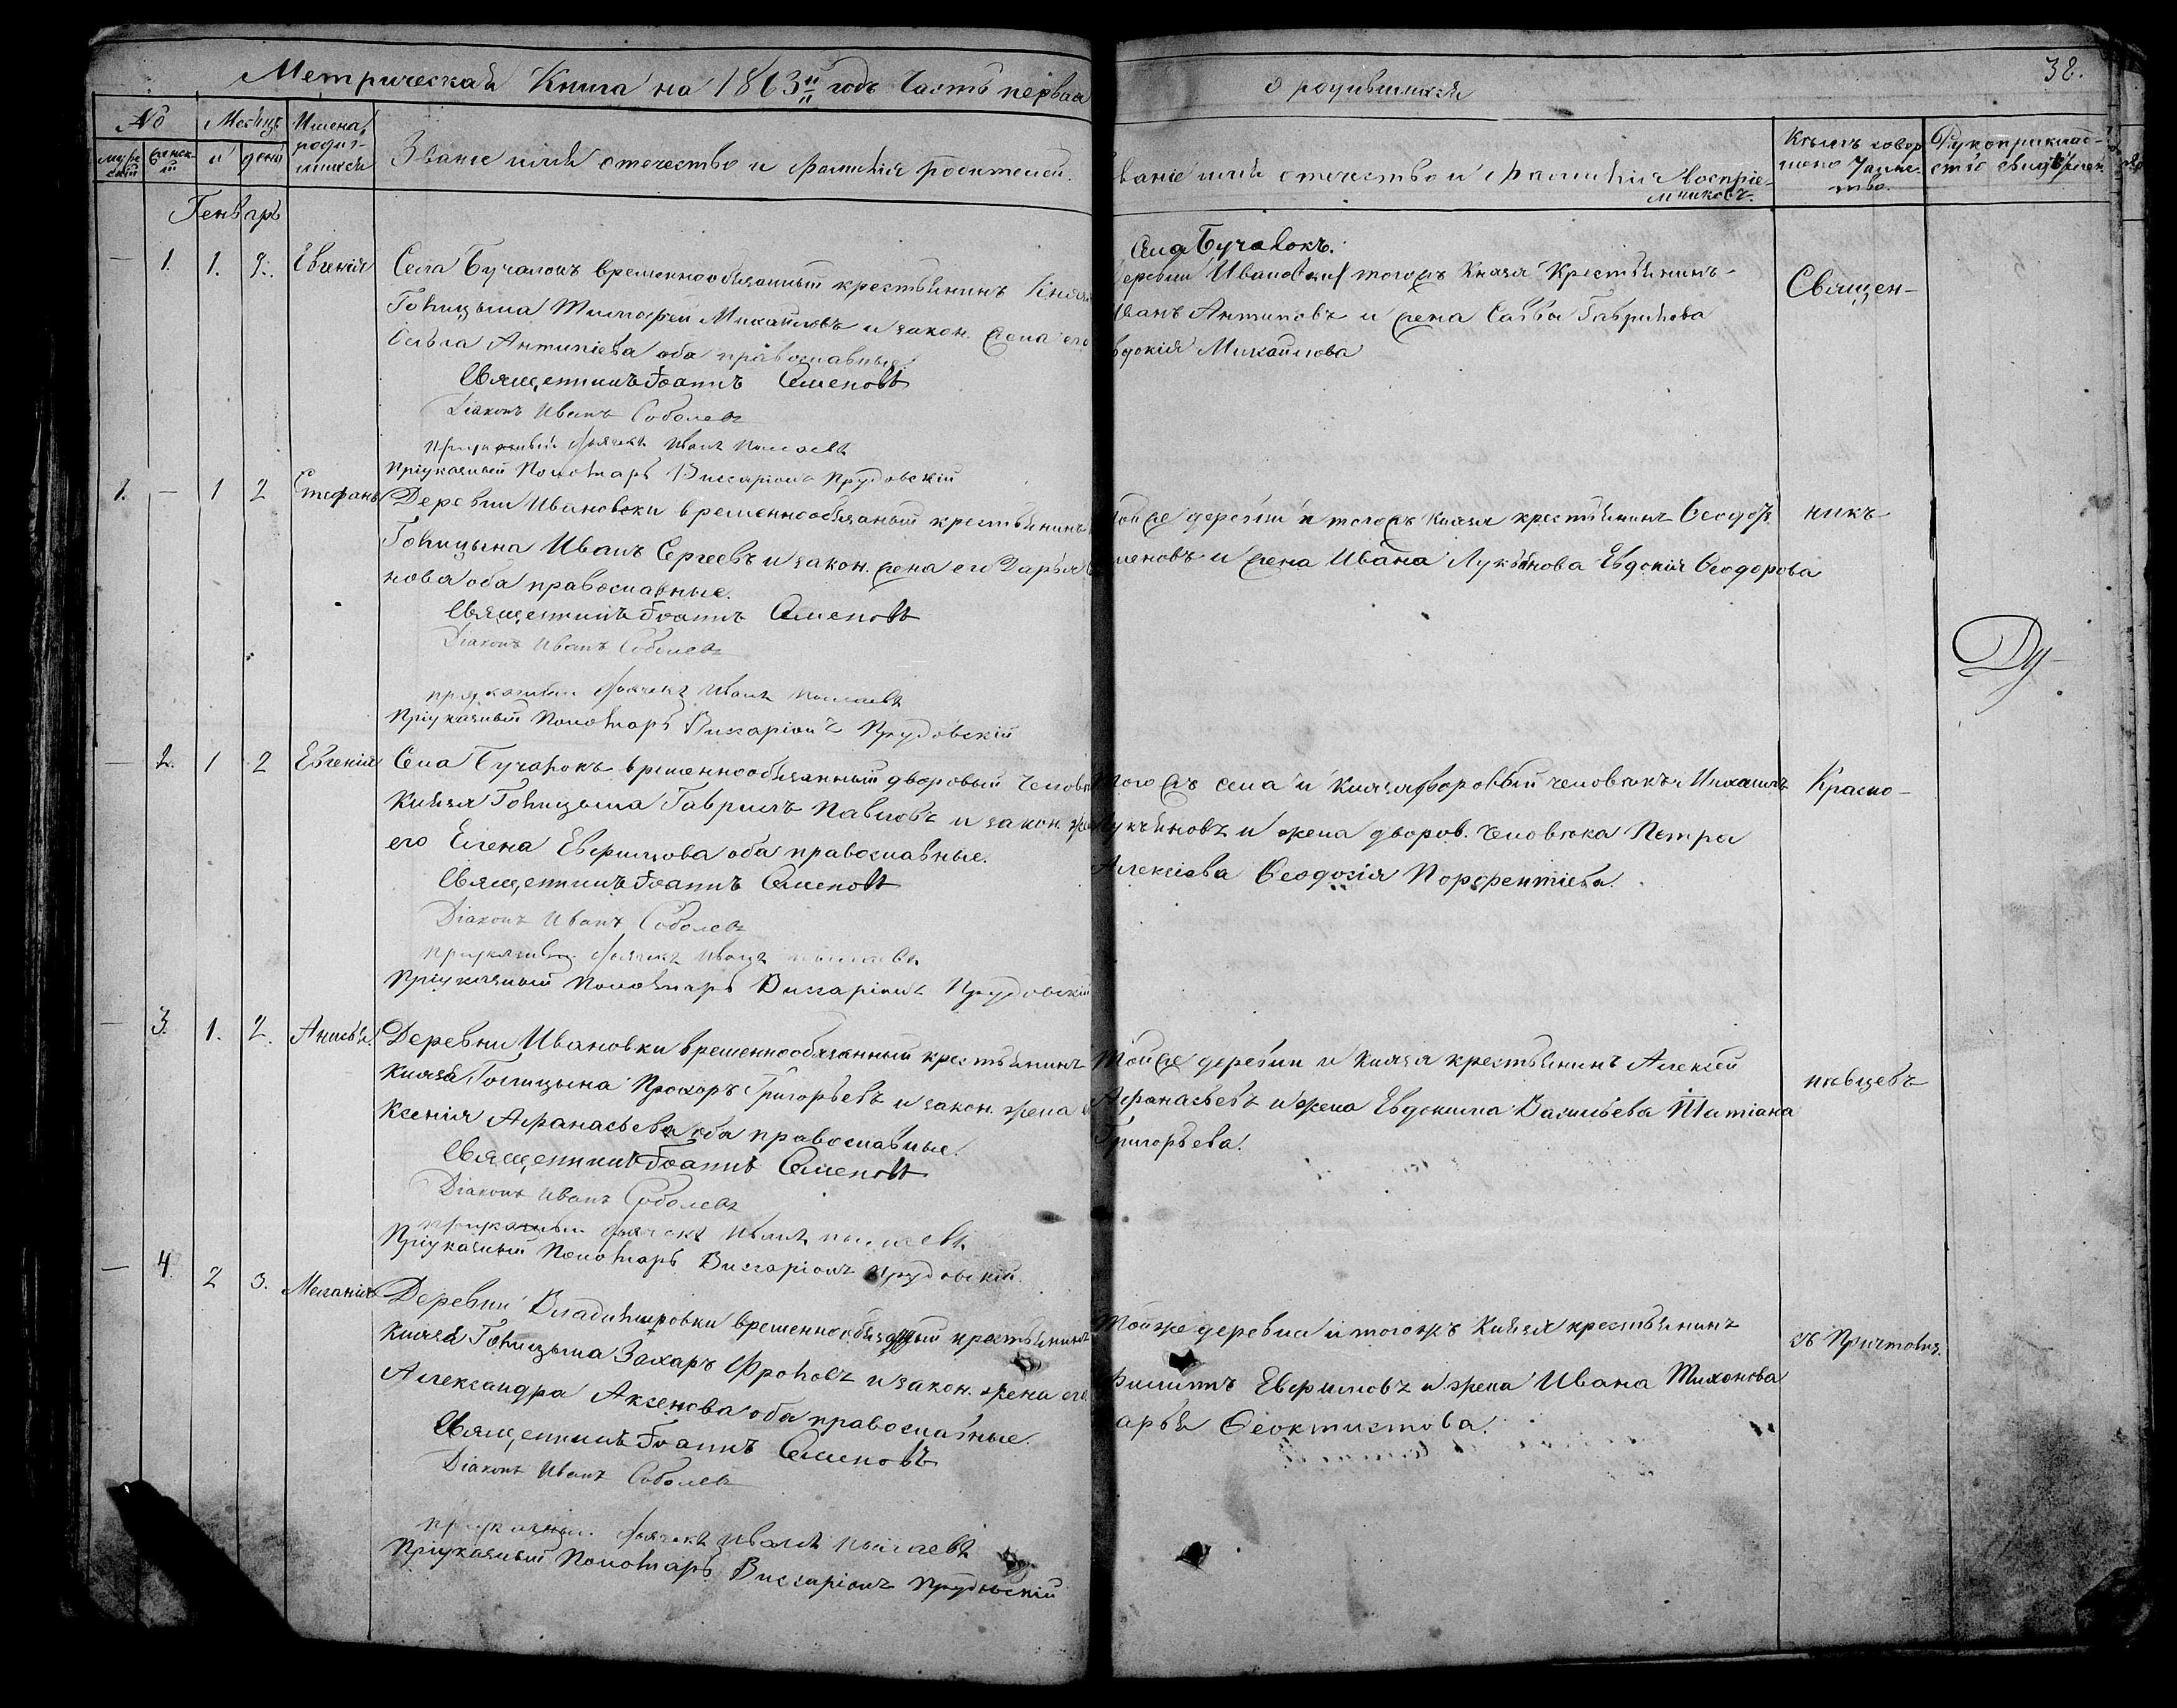 Метрическая Книга на 1863й годъ Часть первая
о родившихся
38.
№
Месяцъ
Имена
родив-
шихся
муже
ской
женск-
ій
и
день
Званіе имя отечество и фамилія родителей.
Званіе имя отечество и фамилія воспріе-
мниковъ.
Кѣмъ совер
шено Таин-
ство.
Рукоприклад-
ство свидѣтелей
Генварь
— 1. 1. 2. Евгенія
Села Бучалокъ временнообязанный крестьянинъ Князя
Голицына Тимофей Михайловъ и закон. жена его
Ольга Антипіева оба православные.
Священникъ Іоаннъ Семеновъ
Діаконъ Иванъ Соболевъ
Иванъ
Пріуказный Пономарь Виссаріонъ Прудовскій
Села Бучалокъ.
Деревни Ивановки тогожъ Князя Крестьянинъ
Иванъ Антиповъ и жена Саввы Гаврилова
Евдокія Михайлова
Священ-
1. — 1 2 Стефанъ
Деревни Ивановки временнообязаный крестьянинъ
Голицына Иванъ Сергеевъ и закон. жена его Дарья
нова оба православные.
Священникъ Іоаннъ Семеновъ
Діаконъ Иванъ Соболевъ
Иванъ
Пріуказный Пономарь Виссаріонъ Прудовскій
Той же деревни и тогожъ князя крестьянинъ Ѳеодоръ
меновъ и жена Ивана Лукьянова Евдокія Ѳеодорова
никъ
Ду-
— 2. 1 2 Евгенія
Села Бучалокъ временнообязанный дворовый человѣкъ
Князя Голицына Гавриилъ Павловъ и закон. жена
его Елена Евфимова оба православные.
Священникъ Іоаннъ Семеновъ
Діаконъ Иванъ Соболевъ
Иванъ
Пріуказный Пономарь Виссаріонъ Прудовскій
Того жъ села и Князя дворовый человѣкъ Михаилъ
Лукьяновъ и жена дворов. человѣка Петра
Алексіева Ѳеодосія Порфентіева.
Красно-
— 3. 1. 2. Анисья.
Деревни Ивановки временнообязанный крестьянинъ
Князя Голицына Прохоръ Григорьевъ и закон. жена
Ксенія Афанасьева оба православные.
Священникъ Іоаннъ Семеновъ
Діаконъ Иванъ Соболевъ
Иванъ
Пріуказный Пономарь Виссаріонъ Прудовскій
Той же деревни и Князя крестьянинъ Алексѣй
Афанасьевъ и жена Евдокима Васильева Татіана
Григорьева.
пѣвцевъ
— 4. 2 3. Меланія
Деревни Владимировки временнообязанный крестьянинъ
Князя Голицына Захаръ Фроловъ и закон. жена его
Александра Аксенова оба православные.
Священникъ Іоаннъ Семеновъ
Діаконъ Иванъ Соболевъ
Иванъ
Пріуказный Пономарь Виссаріонъ Прудовскій
Той же деревни и тогожъ Князя крестьянинъ
Филиппъ Евфимовъ и жена Ивана Тихонова
Дарья Ѳеоктистова.
съ Причтомъ.